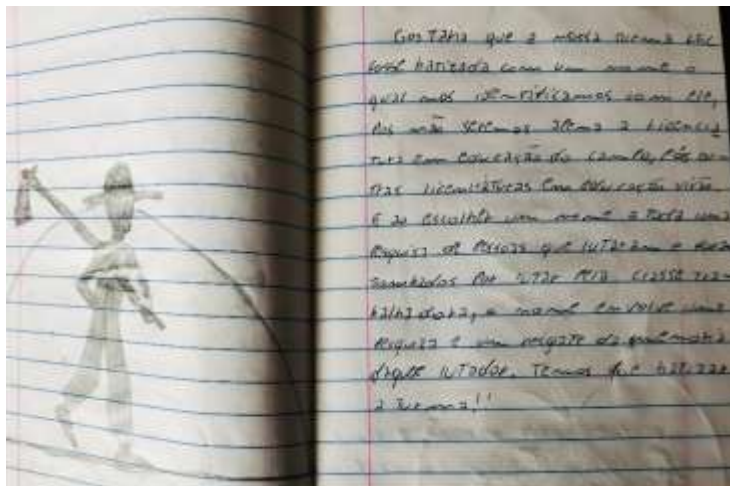 Gostaria que a nossa turma
fosse batizada com um nome o
qual nos identificamos com ele,
pos não seremos a
tura em educação do campo,
tras licenciaturas em educação virão
E ao escolher um nome
pesquisa de pessoas que lutaram e
por lutar pela classe tra-
balhadora, o nome envolve uma
pesquisa e um resgate da
lutador. Temos que batizar
a turma!!